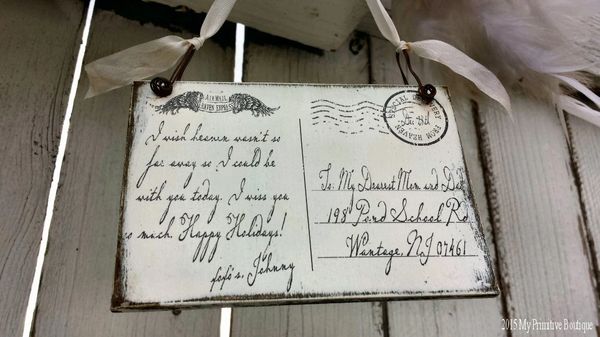 AIRMAIL
HEAVEN EXPRESS
SPECIAL DELIVERY
FROM HEAVEN
I wish heaven wasn't so
far away so I could be
with you today. I miss you
so much. Happy Holidays!
xoxo's, Johnny
To: My Dearest Mom and Dad
198 Pond School Rd
Wantage, NJ 07461
2015 My Primitive Boutique